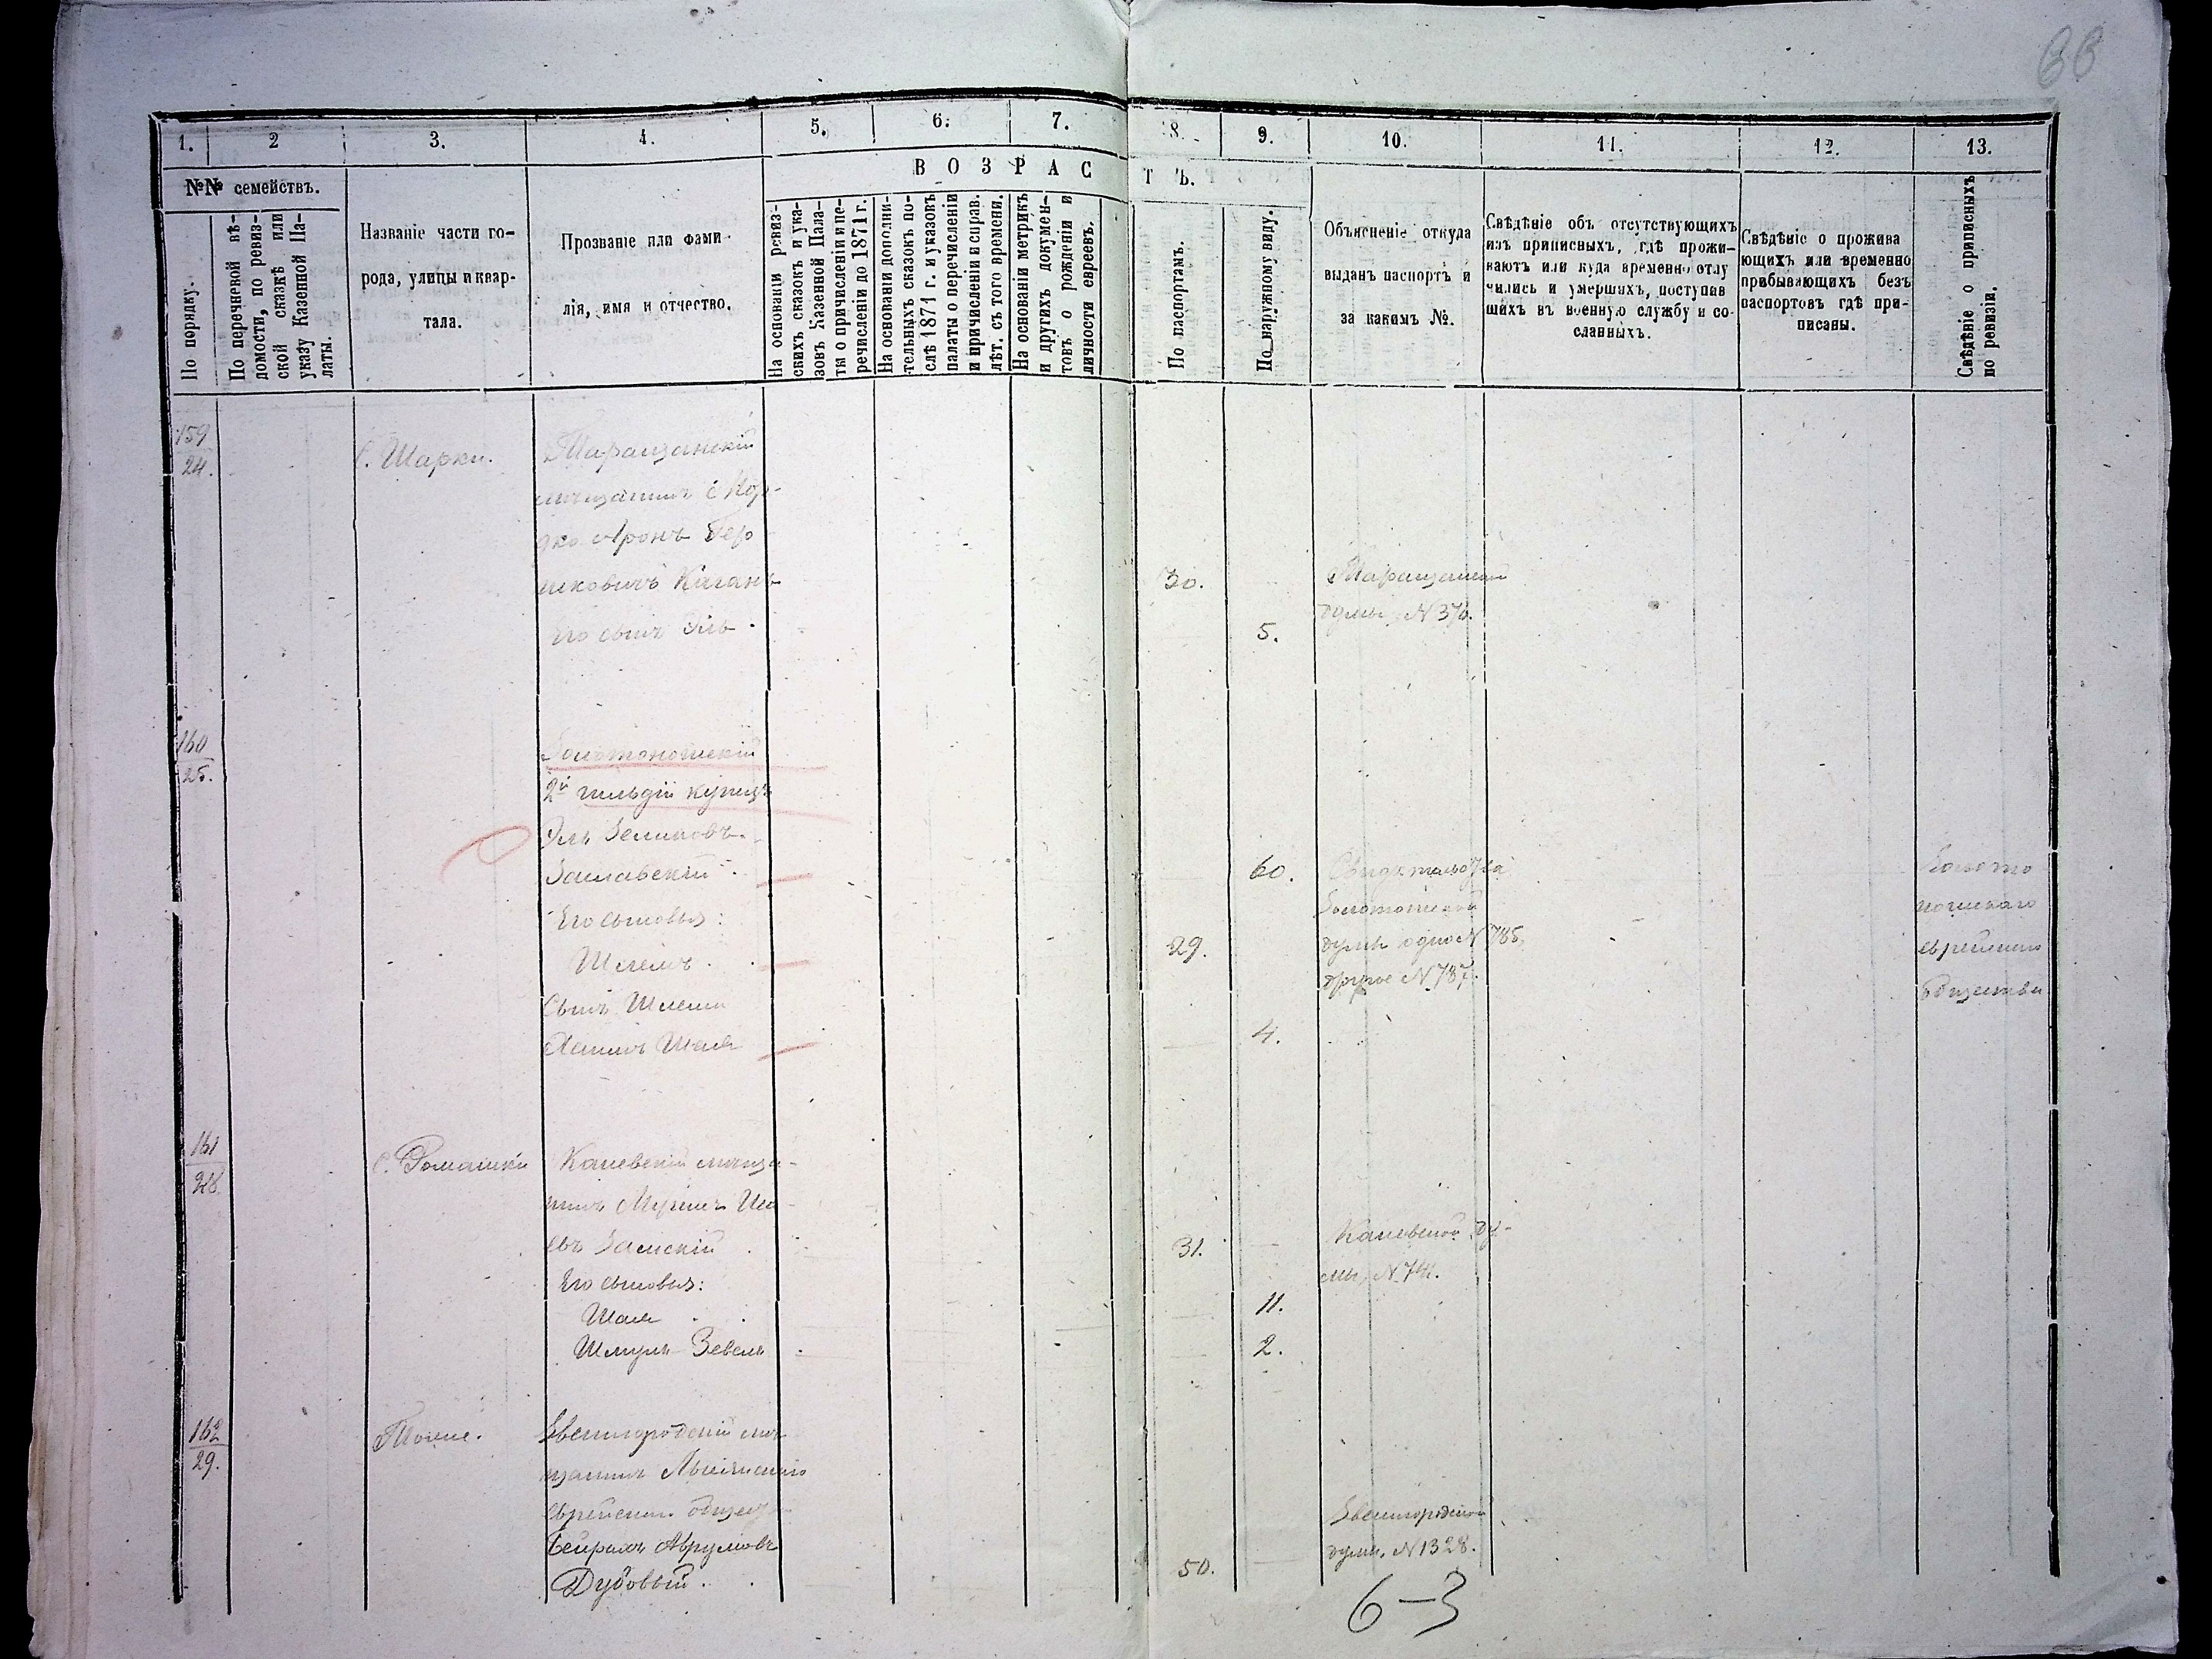 1. 2 3. 4. 5. 6. 7. 8. 9. 10. 11. 12. 13.
№№ семействъ.
ВОЗРАСТЪ.
По порядку.
По перечневой вѣ-
домости, по ревиз-
ской сказкѣ или
указу Казенной Па-
латы.
Названіе части го-
рода, улицы и квар-
тала.
Прозваніе или фами-
лія, имя и отчество.
На основаніи ревиз-
скихъ сказокъ и ука-
зовъ Казенной Пала-
ты о причисленіи и пе-
речисленіи до 1871 г.
На основаніи дополни-
тельныхъ сказокъ по-
слѣ 1871 г. и указовъ
палаты о перечисленіи
и причисленіи и справ.
лѣт. съ того времени.
На основаніи метрикъ
и другихъ докумен-
товъ о рожденіи и
личности евреевъ.
По паспортамъ.
По наружному виду.
Объясненіе откуда
выданъ паспортъ и
за какимъ №.
Свѣдѣніе объ отсутствующихъ
изъ приписныхъ, гдѣ прожи-
ваютъ или куда временно отлу
чились и умершихъ, поступив
шихъ въ военную службу и со-
сланныхъ.
Свѣдѣніе о прожива
ющихъ или временно
прибывающихъ безъ
паспортовъ гдѣ при-
писаны.
Свѣдѣніе о приписныхъ
по ревизіи.
159
24.
С. Шарки.
Таращанскій
мѣщанинъ
Аронъ Гер
шковичъ Каганъ
30.
Таращанской
думы, N 376.
Его сынъ Эль.
5.
160
25.
Золотоношскій
2й гильдіи купецъ
Эль Зеликовъ.
Заславскій.
60.
Свидѣтельства
Золотоношской
думы одно N 785,
другое N 787.
Золото
ношскаго
еврейскаго
общества
Его сыновья:
Шлемъ.
29.
Сынъ Шлемы
Хаимъ Шая
4.
161
28
С. Ромашки
Каневскій мѣща-
нинъ
евъ Замскій
31.
Каневской ду-
мы, N
Его сыновья:
Шая
11.
Шмуль Зевель
2.
162
29.
Тоже.
Звенигородскій мѣ-
щанинъ Лысянскаго
еврейск. общест
Аврумовъ
Дубовый.
50.
Звенигородской
думы, N 1328.
6-3